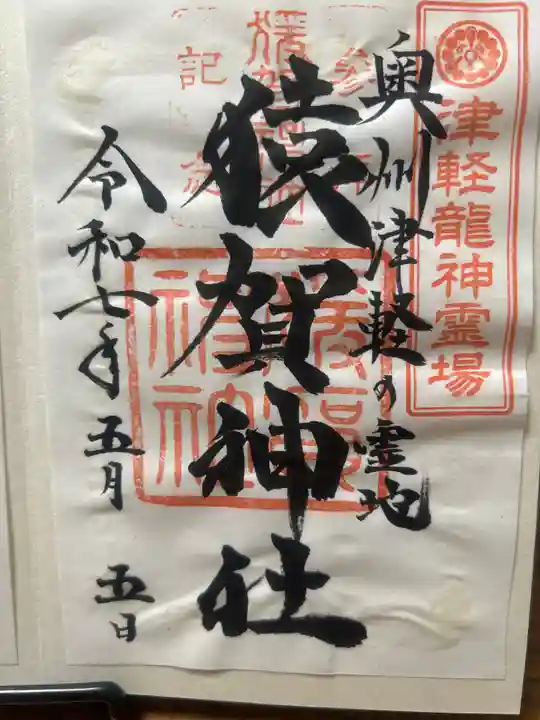 津軽龍神霊場
奥州津軽の霊地
猿賀神社
令和七年五月 五日